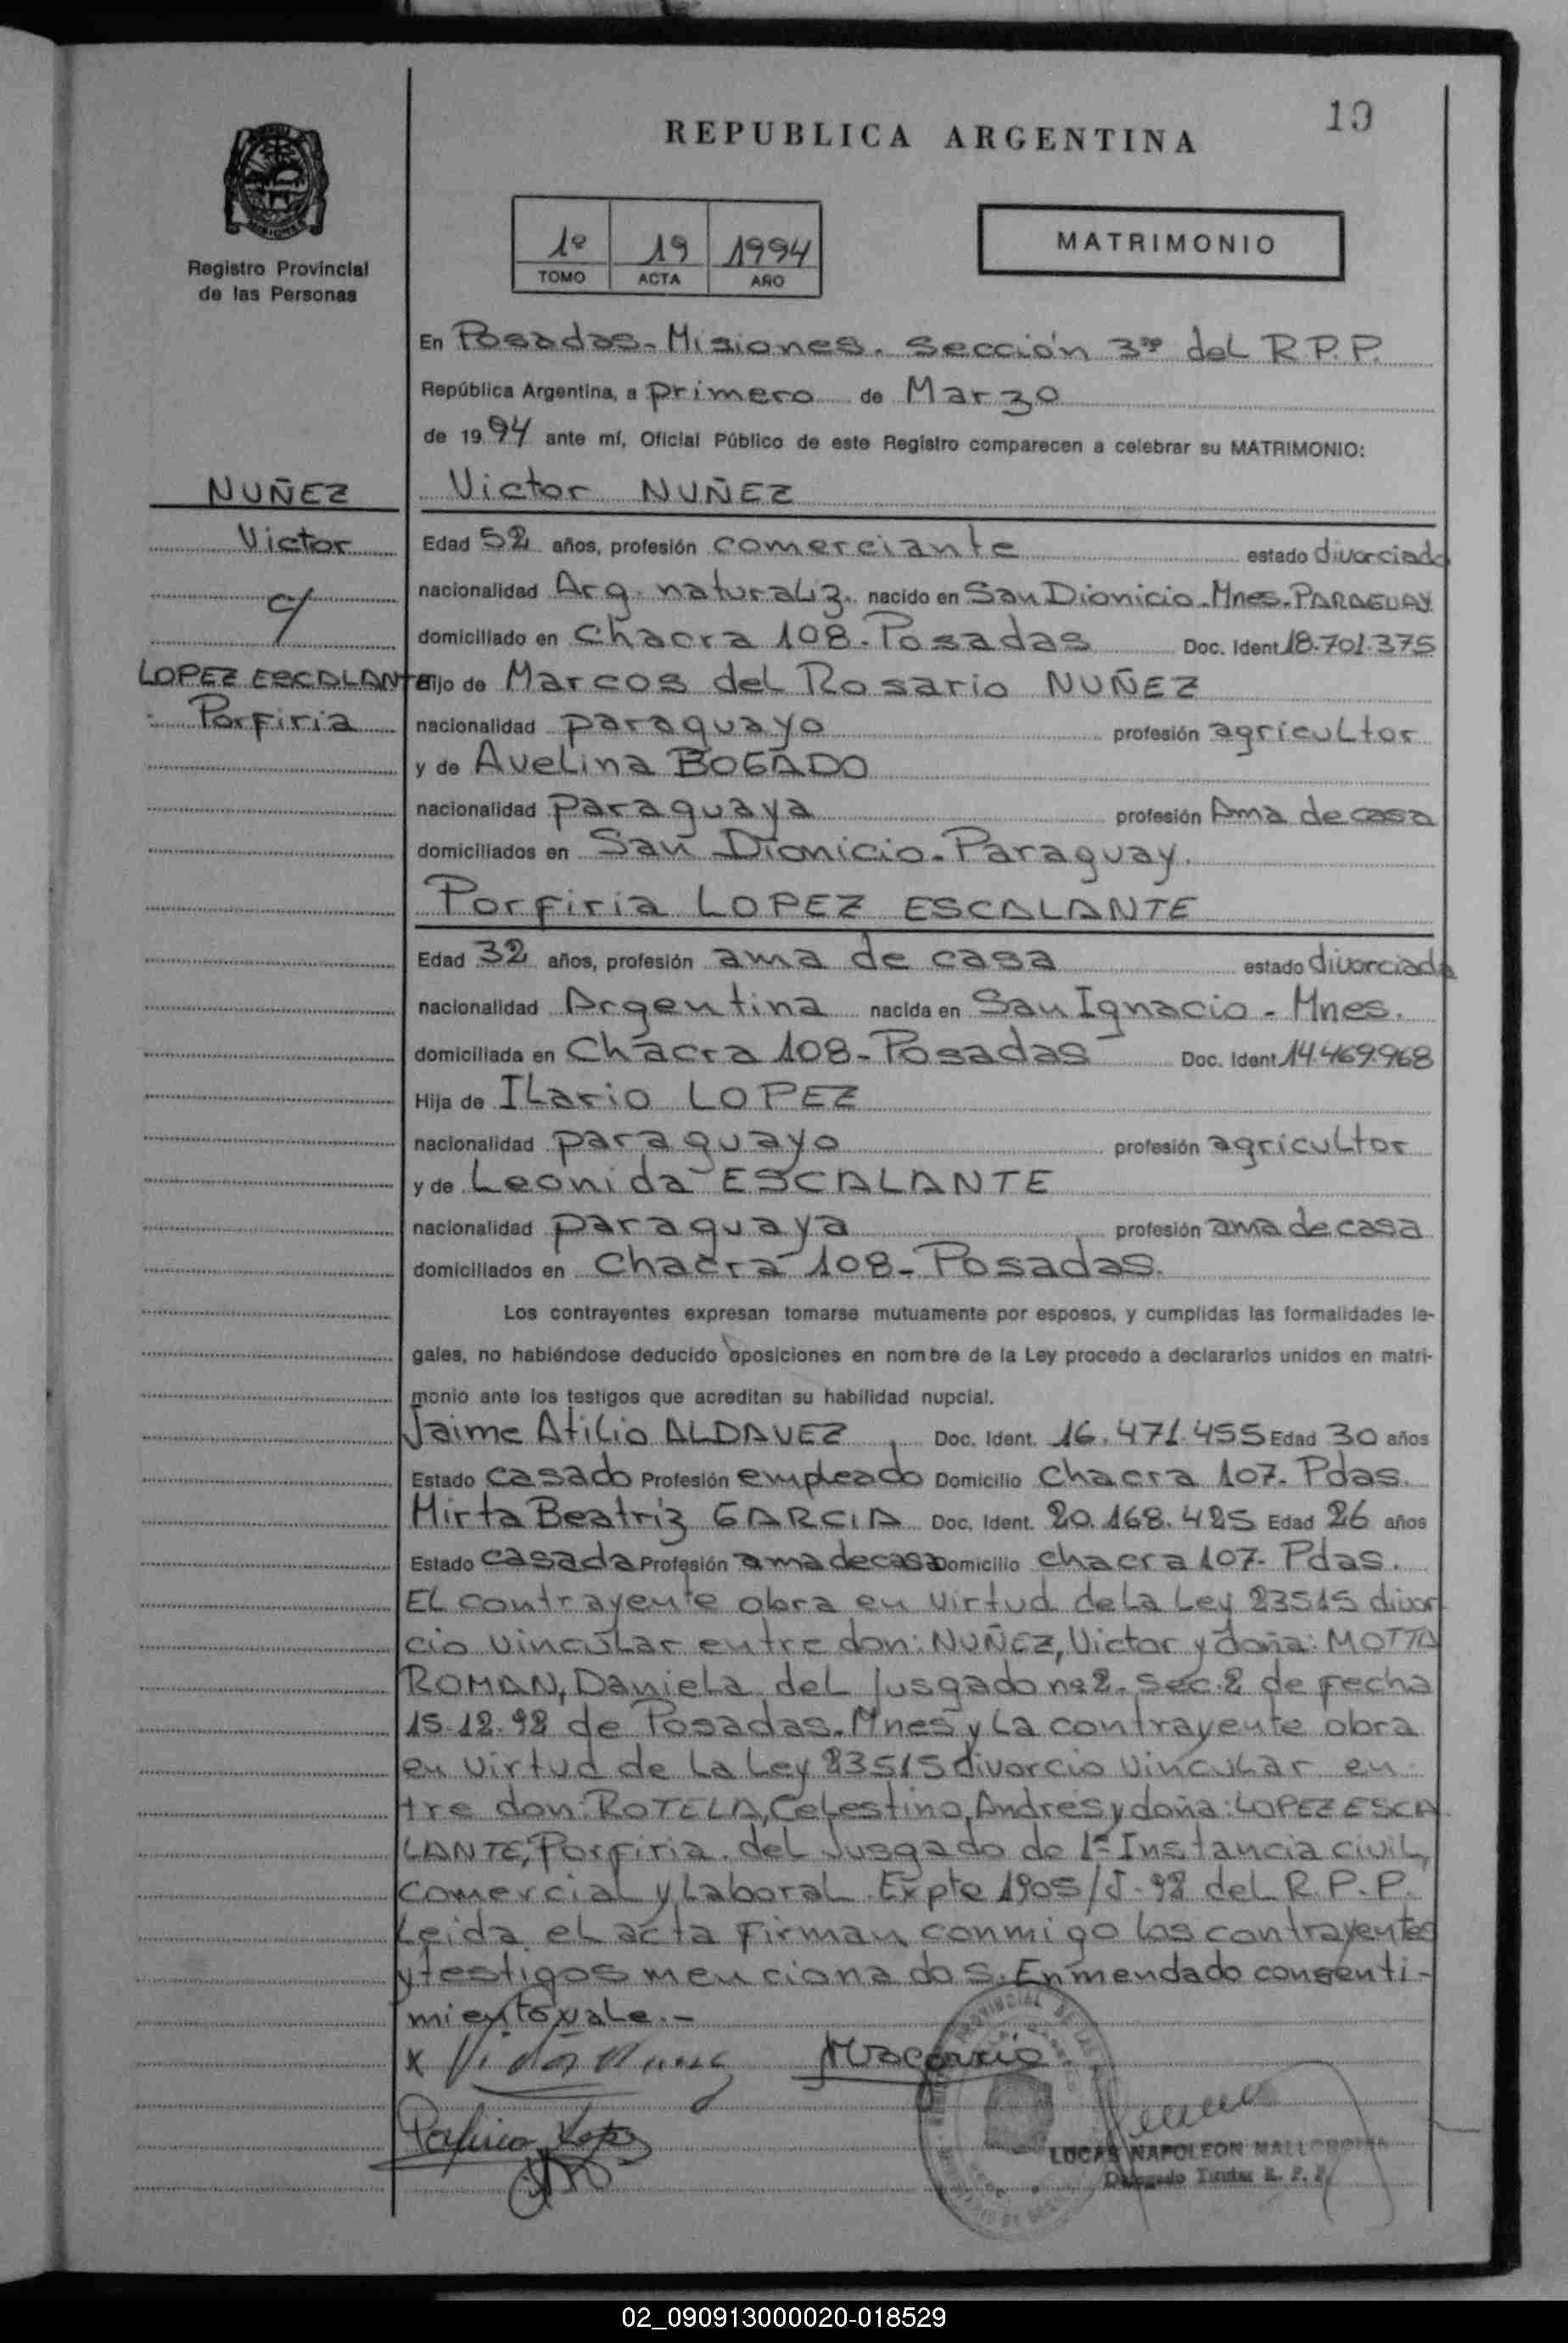 10
REPUBLICA ARGENTINA
1º 19 1994
TOMO ACTA AÑO
MATRIMONIO
Registro Provincial
de las Personas
En Posadas-Misiones. Sección 3ra del R.P.P.
República Argentina, a primero de Marzo
de 1994 ante mí, Oficial Público de este Registro comparecen a celebrar su MATRIMONIO:
NUÑEZ
Victor
c/
LOPEZ ESCALANTE
Porfiria
Victor NUÑEZ
Edad 52 años, profesión comerciante estado divorciado
nacionalidad Arg. naturaliz. nacido en San Dionicio-Mnes-PARAGUAY
domiciliado en Chacra 108-Posadas Doc. Ident 18.701.375
Hijo de Marcos del Rosario NUÑEZ
nacionalidad paraguayo profesión agricultor
y de Avelina BOGADO
nacionalidad paraguaya profesión Ama de casa
domiciliados en San Dionicio-Paraguay.
Porfiria LOPEZ ESCALANTE
Edad 32 años, profesión ama de casa estado divorciada
nacionalidad Argentina nacida en San Ignacio - Mnes.
domiciliada en Chacra 108-Posadas Doc. Ident 14.469.968
Hija de ILario LOPEZ
nacionalidad paraguayo profesión agricultor
y de Leonida ESCALANTE
nacionalidad paraguaya profesión ama de casa
domiciliados en Chacra 108-Posadas.
Los contrayentes expresan tomarse mutuamente por esposos, y cumplidas las formalidades le-
gales, no habiéndose deducido oposiciones en nombre de la Ley procedo a declararlos unidos en matri-
monio ante los testigos que acreditan su habilidad nupcial.
Jaime Atilio ALDAVEZ Doc. Ident. 16.471.455 Edad 30 años
Estado casado Profesión empleado Domicilio Chacra 107-Pdas.
Mirta Beatriz GARCIA Doc. Ident. 20.168.425 Edad 26 años
Estado casada Profesión ama de casa Domicilio chacra 107-Pdas.
El contrayente obra en virtud de la Ley 23515 divor
cio vincular entre don: NUÑEZ, Victor y doña: MOTTA
ROMAN, Daniela del Jusgado nº2-Sec.2 de fecha
15-12-92 de Posadas-Mnes y la contrayente obra
en virtud de la Ley 23515 divorcio vincular en
tre don: ROTELA, Celestino Andres y doña: LOPEZ ESCA
LANTE, Porfiria del Jusgado de 1ª Instancia civil,
comercial y laboral. Expte 1905/J-92 del R.P.P.
Leida el acta firman conmigo los contrayentes
y testigos mencionados. Enmendado consenti-
miento vale.-
x Victor Nunez
Porfiria Lopez
LUCAS NAPOLEON
Delegado Titular R. P. P.
02_090913000020-018529